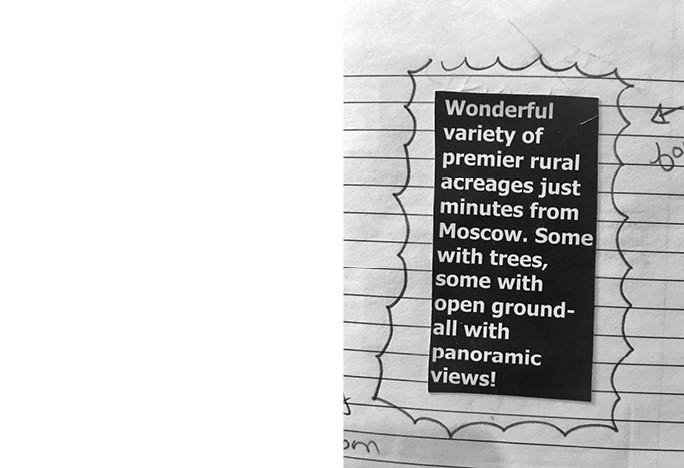 Wonderful
variety of
premier rural
acreages just
minutes from
Moscow. Some
with trees,
some with
open ground-
all with
panoramic
views!